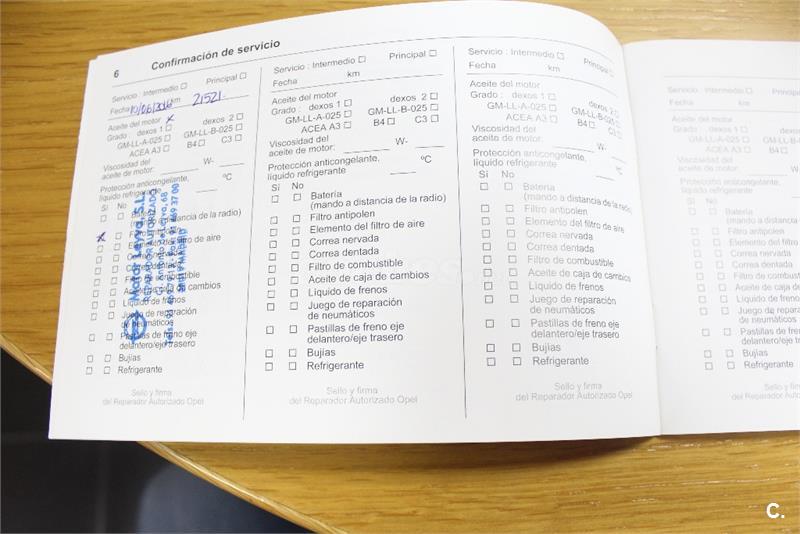 6 Confirmación de servicio
Servicio : Intermedio ☐ Principal ☐
Fecha 10/06/2016 km 21521
Aceite del motor x
Grado : dexos 1 ☐ dexos 2 ☐
GM-LL-A-025 ☐ GM-LL-B-025 ☐
ACEA A3 ☐ B4 ☐ C3 ☐
Viscosidad del
aceite de motor: W-
Protección anticongelante,
líquido refrigerante ºC
Sí No
☐ ☐ Batería
(mando a distancia de la radio)
x ☐ Filtro antipolen
☐ ☐ Elemento del filtro de aire
☐ ☐ Correa nervada
☐ ☐ Correa dentada
☐ ☐ Filtro de combustible
☐ ☐ Aceite de caja de cambios
☐ ☐ Líquido de frenos
☐ ☐ Juego de reparación
de neumáticos
☐ ☐ Pastillas de freno eje
delantero/eje trasero
☐ ☐ Bujías
☐ ☐ Refrigerante
Sello y firma
del Reparador Autorizado Opel
Motor Leyva, S.L.
REPARADOR AUTORIZADO
MADRID
Servicio : Intermedio ☐ Principal ☐
Fecha km
Aceite del motor
Grado : dexos 1 ☐ dexos 2 ☐
GM-LL-A-025 ☐ GM-LL-B-025 ☐
ACEA A3 ☐ B4 ☐ C3 ☐
Viscosidad del
aceite de motor: W-
Protección anticongelante,
líquido refrigerante ºC
Sí No
☐ ☐ Batería
(mando a distancia de la radio)
☐ ☐ Filtro antipolen
☐ ☐ Elemento del filtro de aire
☐ ☐ Correa nervada
☐ ☐ Correa dentada
☐ ☐ Filtro de combustible
☐ ☐ Aceite de caja de cambios
☐ ☐ Líquido de frenos
☐ ☐ Juego de reparación
de neumáticos
☐ ☐ Pastillas de freno eje
delantero/eje trasero
☐ ☐ Bujías
☐ ☐ Refrigerante
Sello y firma
del Reparador Autorizado Opel
Servicio : Intermedio ☐ Principal ☐
Fecha km
Aceite del motor
Grado : dexos 1 ☐ dexos 2 ☐
GM-LL-A-025 ☐ GM-LL-B-025 ☐
ACEA A3 ☐ B4 ☐ C3 ☐
Viscosidad del
aceite de motor: W-
Protección anticongelante,
líquido refrigerante ºC
Sí No
☐ ☐ Batería
(mando a distancia de la radio)
☐ ☐ Filtro antipolen
☐ ☐ Elemento del filtro de aire
☐ ☐ Correa nervada
☐ ☐ Correa dentada
☐ ☐ Filtro de combustible
☐ ☐ Aceite de caja de cambios
☐ ☐ Líquido de frenos
☐ ☐ Juego de reparación
de neumáticos
☐ ☐ Pastillas de freno eje
delantero/eje trasero
☐ ☐ Bujías
☐ ☐ Refrigerante
Sello y firma
del Reparador Autorizado Opel
Servicio : Intermedio ☐
Fecha km
Aceite del motor
Grado : dexos 1 ☐
GM-LL-A-025 ☐
ACEA A3 ☐
Viscosidad del
aceite de motor:
Protección anticongelante,
líquido refrigerante
Sí No
☐ ☐ Batería
(mando a distancia
☐ ☐ Filtro antipolen
☐ ☐ Elemento del filtro
☐ ☐ Correa nervada
☐ ☐ Correa dentada
☐ ☐ Filtro de combustible
☐ ☐ Aceite de caja de
☐ ☐ Líquido de frenos
☐ ☐ Juego de reparación
de neumáticos
☐ ☐ Pastillas de freno
delantero/eje
☐ ☐ Bujías
☐ ☐ Refrigerante
Sello y firma
del Reparador Autorizado
C.